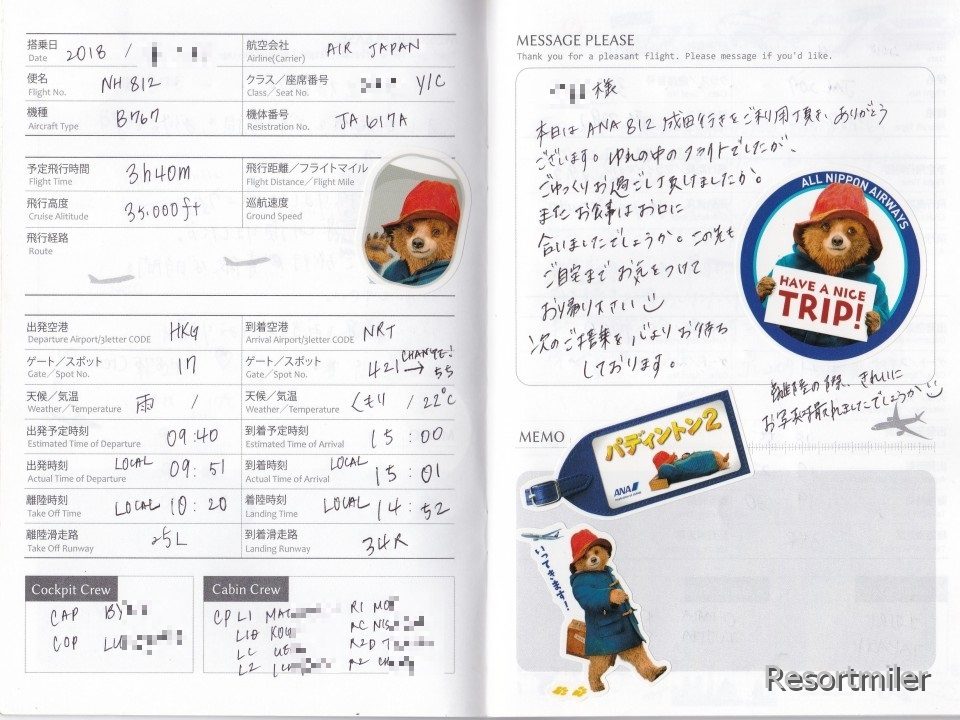 搭乗日
Date
2018 /
航空会社
Airline(Carrier)
AIR JAPAN
便名
Flight No.
NH 812
クラス／座席番号
Class／Seat No.
Y/C
機種
Aircraft Type
B767
機体番号
Resistration No.
JA 617A
予定飛行時間
Flight Time
3h40m
飛行距離／フライトマイル
Flight Distance／Flight Mile
飛行高度
Cruise Alititude
35.000ft
巡航速度
Ground Speed
飛行経路
Route
出発空港
Departure Airport/3letter CODE
HKG
到着空港
Arrival Airport/3letter CODE
NRT
ゲート／スポット
Gate／Spot No.
17
ゲート／スポット
Gate／Spot No.
421 → 55
CHANGE!
天候／気温
Weather／Temperature
雨 /
天候／気温
Weather／Temperature
くもり / 22°C
出発予定時刻
Estimated Time of Departure
09:40
到着予定時刻
Estimated Time of Arrival
15:00
出発時刻
Actual Time of Departure
LOCAL 09:51
到着時刻
Actual Time of Arrival
LOCAL 15:01
離陸時刻
Take Off Time
LOCAL 10:20
着陸時刻
Landing Time
LOCAL 14:52
離陸滑走路
Take Off Runway
25L
到着滑走路
Landing Runway
34R
Cockpit Crew
CAP
COP
Cabin Crew
CP L1
R1
L2
R2
MESSAGE PLEASE
Thank you for a pleasant flight. Please message if you'd like.
様
本日は ANA 812 成田行きをご利用頂き、ありがとう
ございます。ゆれの中のフライトでしたが、
ごゆっくりお過ごし頂けましたか。
またお食事はお口に
合いましたでしょうか。この先も
ご自宅までお気をつけて
お帰り下さい
次のご搭乗を心よりお待ち
しております。
離陸の際、きれいに
お写真は撮れましたでしょうか
ALL NIPPON AIRWAYS
HAVE A NICE
TRIP!
MEMO
パディントン2
ANA
いってきます！
Resortmiler